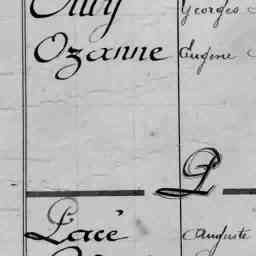 Georges
Ozanne Eugène
P
Pacé Auguste